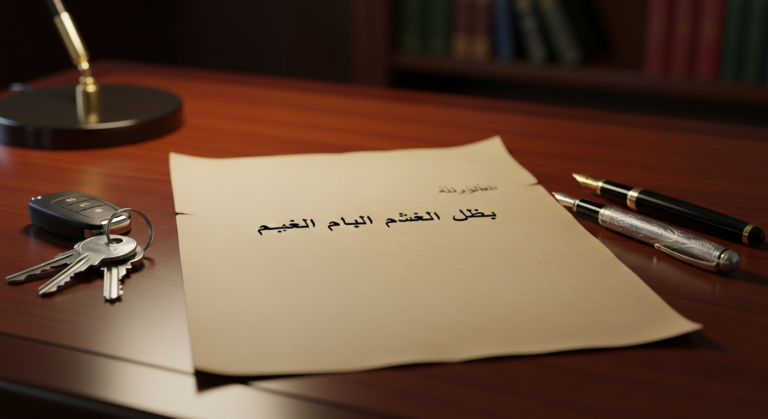 بظل الغشم البام الغيم